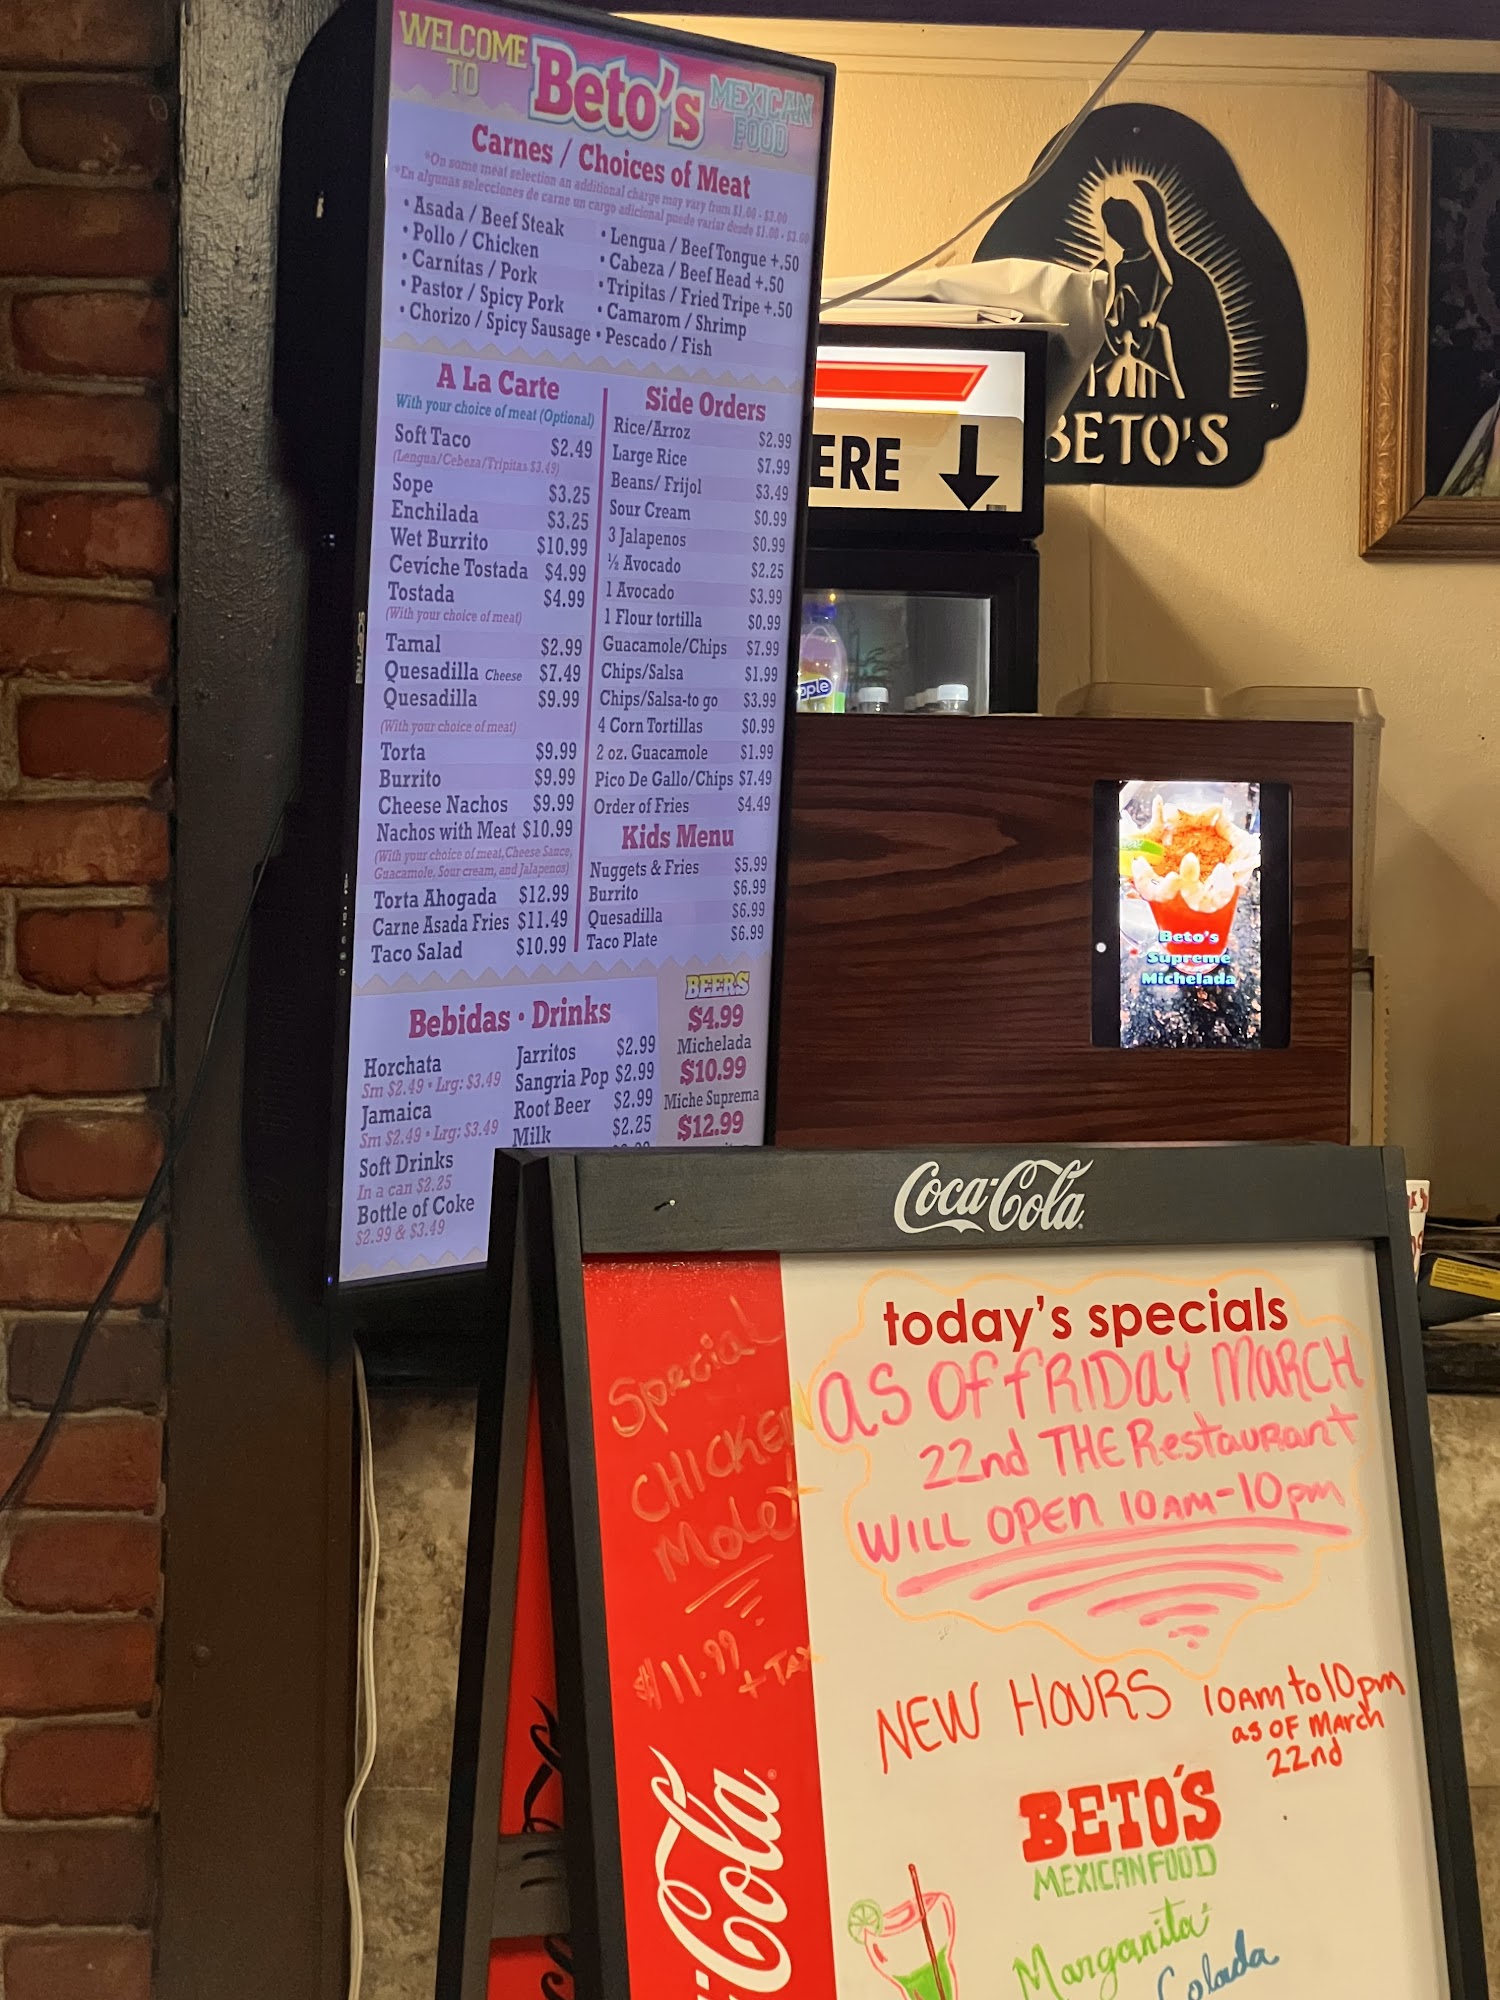 WELCOME TO Beto's MEXICAN FOOD
Carnes / Choices of Meat
*On some meat selection an additional charge may vary from $1.00 - $3.00
*En algunas selecciones de carne un cargo adicional puede variar desde $1.00 - $3.00
• Asada / Beef Steak
• Pollo / Chicken
• Carnitas / Pork
• Pastor / Spicy Pork
• Chorizo / Spicy Sausage
• Lengua / Beef Tongue +.50
• Cabeza / Beef Head +.50
• Tripitas / Fried Tripe +.50
• Camarom / Shrimp
• Pescado / Fish
A La Carte
With your choice of meat (Optional)
Soft Taco $2.49
(Lengua/Cebeza/Tripitas $3.49)
Sope $3.25
Enchilada $3.25
Wet Burrito $10.99
Cevíche Tostada $4.99
Tostada $4.99
(With your choice of meat)
Tamal $2.99
Quesadilla Cheese $7.49
Quesadilla $9.99
(With your choice of meat)
Torta $9.99
Burrito $9.99
Cheese Nachos $9.99
Nachos with Meat $10.99
(With your choice of meat, Cheese Sauce,
Guacamole, Sour cream, and Jalapenos)
Torta Ahogada $12.99
Carne Asada Fries $11.49
Taco Salad $10.99
Side Orders
Rice/Arroz $2.99
Large Rice $7.99
Beans/ Frijol $3.49
Sour Cream $0.99
3 Jalapenos $0.99
½ Avocado $2.25
1 Avocado $3.99
1 Flour tortilla $0.99
Guacamole/Chips $7.99
Chips/Salsa $1.99
Chips/Salsa-to go $3.99
4 Corn Tortillas $0.99
2 oz. Guacamole $1.99
Pico De Gallo/Chips $7.49
Order of Fries $4.49
Kids Menu
Nuggets & Fries $5.99
Burrito $6.99
Quesadilla $6.99
Taco Plate $6.99
Bebidas • Drinks
Horchata
Sm $2.49 • Lrg: $3.49
Jamaica
Sm $2.49 • Lrg: $3.49
Soft Drinks
In a can $2.25
Bottle of Coke
$2.99 & $3.49
Jarritos $2.99
Sangria Pop $2.99
Root Beer $2.99
Milk $2.25
BEERS
$4.99
Michelada
$10.99
Miche Suprema
$12.99
SCEPTRE
ERE
BETO'S
pple
Beto's
Supreme
Michelada
Coca-Cola
Special
CHICKEN
Mole
$11.99
+ TAX
Coca-Cola
today's specials
as of FRIDAY MARCH
22nd THE Restaurant
WILL OPEN 10AM-10pm
NEW HOURS 10Am to 10pm
as OF March
22nd
BETO'S
MEXICAN FOOD
Marganita
Colada